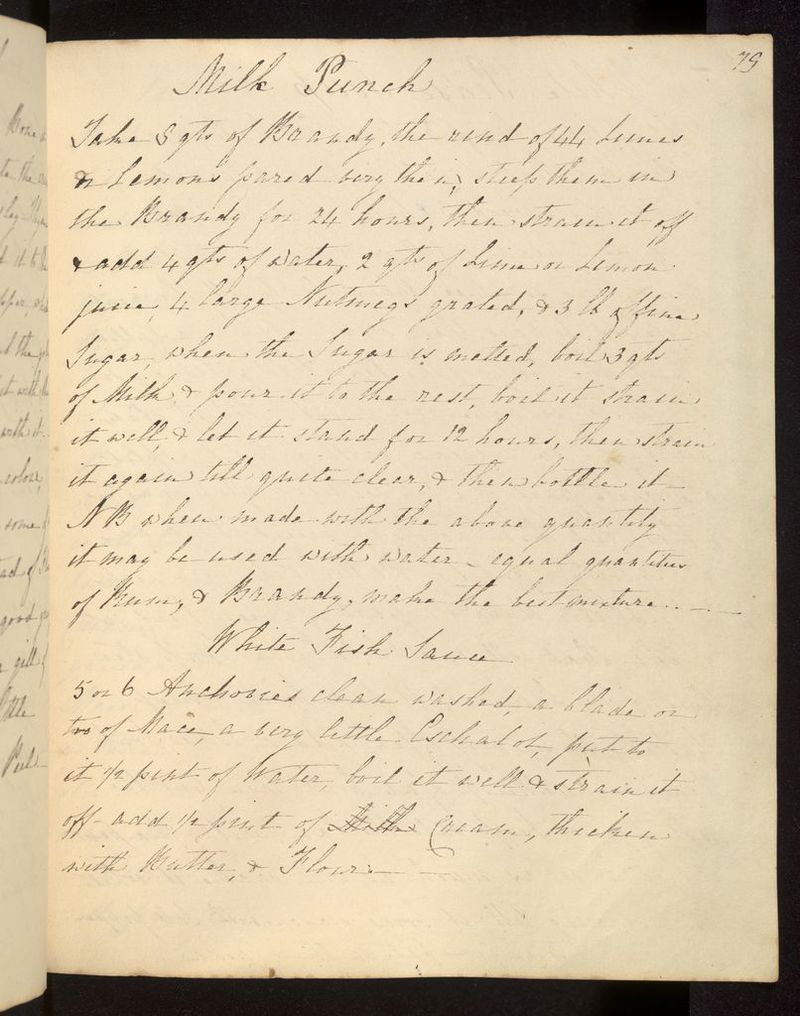 79
Milk Punch
Take 8 qts of Brandy, the rind of 44 Limes
or Lemons pared very thin, steep them in
the Brandy for 24 hours, then strain it off
& add 4 qts of water, 2 qts of Lime or Lemon
juice, 4 large Nutmegs grated, & 3 lb of fine
Sugar, when the Sugar is melted, boil 3 qts
of Milk & pour it to the rest, boil it strain
it well, & let it stand for 12 hours, then strain
it again till quite clear, & then bottle it -
NB when made with the above quantity
it may be used with water - equal quantities
of Rum, & Brandy, make the best mixture . . - -
White Fish Sauce
5 or 6 Anchovies clean washed, a blade or
two of Mace, a very little Eschalot, put to
it 1/2 pint of Water, boil it well & strain it
off - add 1/2 pint of Cream, thicken
with Butter, & Flour - -